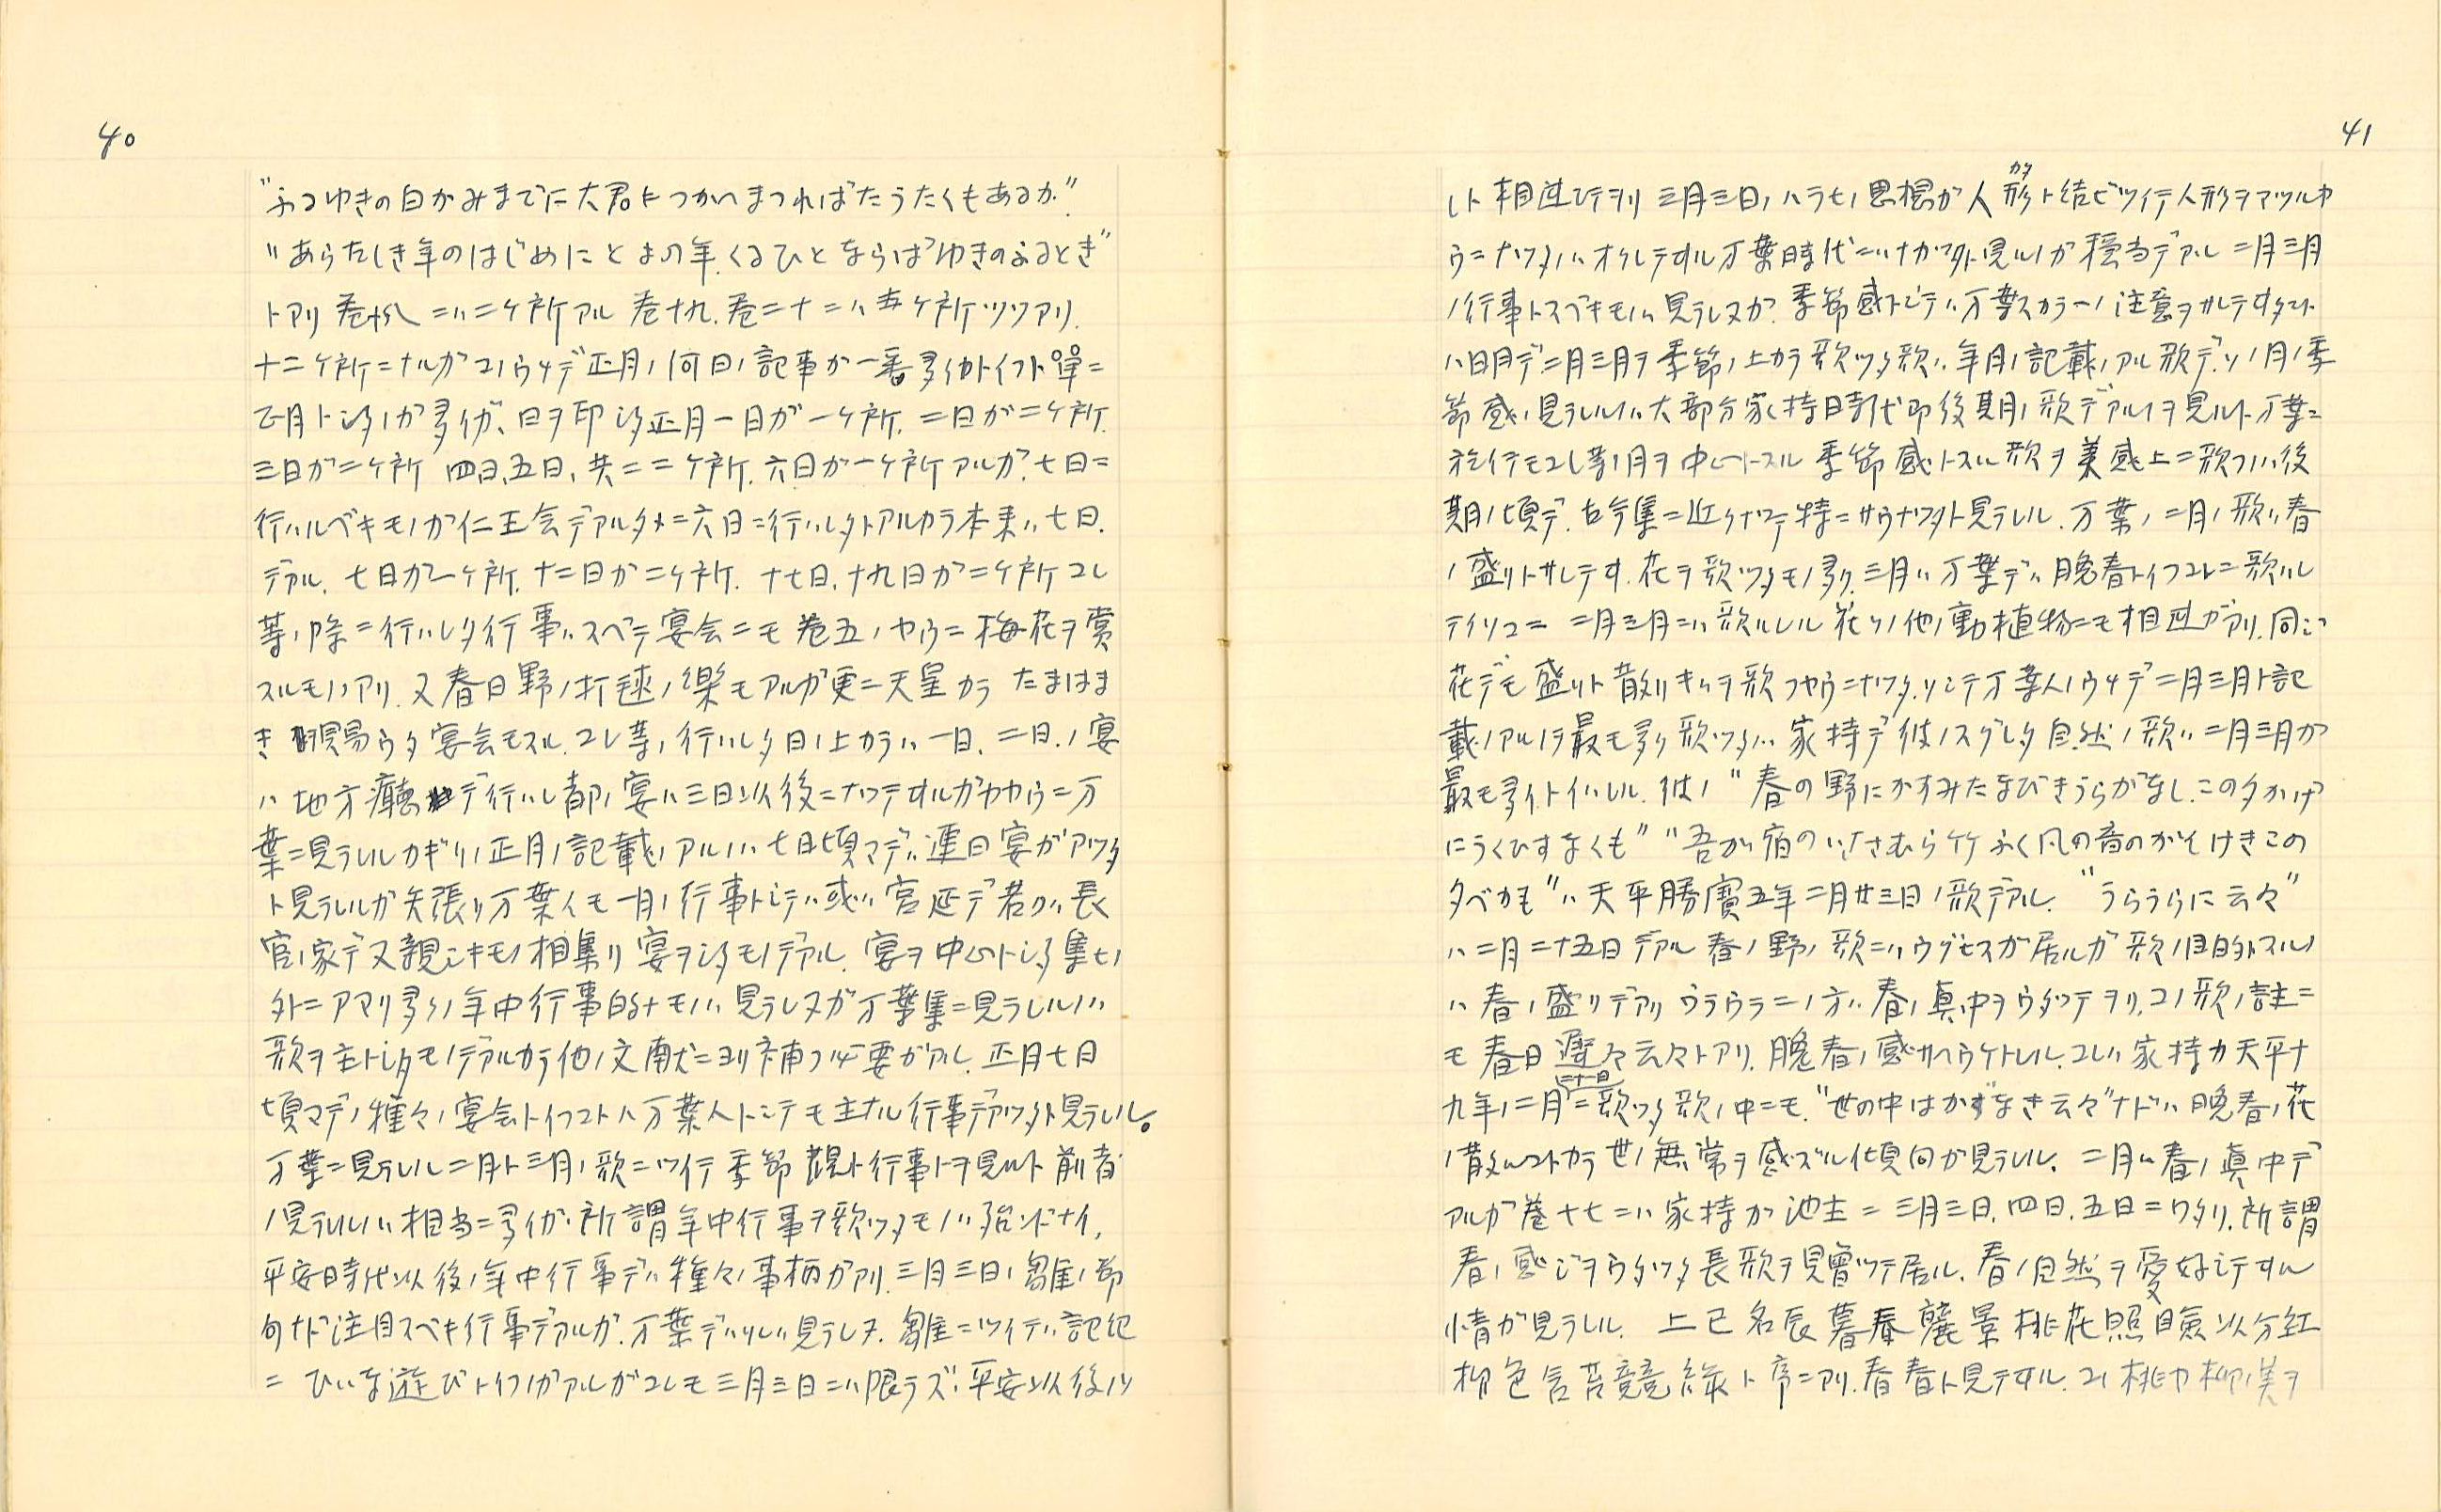 40
"ふるゆきの白かみまでに大君につかへまつればたうたくもあるか"
"あらたしき年のはじめにとよの年くるひとならばゆきのふるとぎ"
トアリ 巻十八ニハニケ所アル 巻十九、巻二十ニハ五ケ所ヅツアリ.
十二ケ所ニナルガコノウチデ正月ノ何日ノ記事ガ一番多イカトイフト単ニ
正月トシタノガ多イガ、日ヲ印シタ正月一日ガ一ケ所. 二日ガ二ケ所.
三日ガ二ケ所 四日、五日、共ニ二ケ所. 六日ガ一ケ所アルガ、七日ニ
行ハルベキモノガ仁王会デアルタメニ六日ニ行ハレタトアルカラ本来ハ七日.
デアル. 七日ガ一ケ所. 十二日ガ二ケ所. 十七日、十九日ガ二ケ所コレ
等ノ際ニ行ハレタ行事ハスベテ宴会ニモ巻五ノヤウニ梅花ヲ賞
スルモノハアリ. 又春日野ノ打毬ノ楽モアルガ更ニ天皇カラ たまはま
き 賜ウタ宴会モスル. コレ等ノ行ハレタ日ノ上カラハ一日、二日、ノ宴
ハ地方廳デ行ハレ都ノ宴ハ三日以後ニナツテオルガカヤウニ万
葉ニ見ラレルカギリノ正月ノ記載ノアルノハ七日頃マデハ連日宴ガアツタ
ト見ラレルガ矢張リ万葉人モ一月ノ行事トシテハ或ハ宮延デ若クハ長
官ノ家デ又親シキモノ相集リ宴ヲシタモノデアル. 宴ヲ中心トシタ集ヒノ
外ニアマリ多クノ年中行事的ナモノハ見ラレヌガ万葉集ニ見ラレルノハ
歌ヲ主トシタモノデアルカラ他ノ文献ニヨリ補フ必要ガアル. 正月七日
頃マデノ種々ノ宴会トイフコトハ万葉人トシテモ主ナル行事デアツタト見ラレル。
万葉ニ見ラレル二月ト三月ノ歌ニツイテ季節観ト行事トヲ見ルト前者
ノ見ラレルノハ相当ニ多イガ、所謂年中行事ヲ歌ツタモノハ殆ンドナイ.
平安時代以後ノ年中行事デハ種々ノ事柄ガアリ. 三月三日ノ雛ノ節
句ナド注目スベキ行事デアルガ. 万葉デハソレハ見ラレヌ. 雛ニツイテハ記紀
ニ ひいな遊びトイフノガアルガコレモ三月三日ニハ限ラズ、平安以後ハソ
41
レト相違シテヲリ 三月三日ノハラヒノ思想ガ人形カタト結ビツイテ人形ヲマツルヤ
ウニナツタノハオクレテオル万葉時代ニハナカツタト見ルノガ穏当デアル 二月三月
ノ行事トスベキモノハ見ラレヌガ. 季節感トシテハ万葉人カラ一ノ注意ヲサレテオタコト
ハ日月デ二月三月ヲ季節ノ上カラ歌ツタ歌ハ. 年月ノ記載ノアル歌デ、ソノ月ノ季
節感ノ見ラレルノハ大部分家持時代即後期ノ歌デアルノヲ見ルト万葉ニ
於イテモコレ等ノ月ヲ中心トスル季節感トスル歌ヲ美感上ニ歌フノハ後
期ノ頃デ. 古今集ニ近クナツテ特ニサウナツタト見ラレル. 万葉ノ二月ノ歌ハ春
ノ盛リトサレテオ. 花ヲ歌ツタモノ多ク. 三月ハ万葉デハ晩春トイフコトニ歌ハレ
テイソコニ 二月三月ニハ歌ハレル花ソノ他ノ動植物ニモ相違ガアリ. 同ジ
花デモ盛リト散リキハヲ歌フヤウニナツタ. ソシテ万葉人ノウチデ二月三月ト記
載ノアルノヲ最モ多ク歌ツタノハ家持デ彼ノスグレタ自然ノ歌ハ二月三月ガ
最モ多イトイハレル. 彼ノ "春の野にかすみたなびきうらがなし. この夕かげ
にうくひすなくも" "吾が宿のいささむら竹ふく風の音のかそけきこの
夕べかも"ハ天平勝寶五年二月廿三日ノ歌デアル. "うらうらに云々"
ハ二月二十五日デアル 春ノ野ノ歌ニハウグヒスガ居ルガ歌ノ目的トスルノ
ハ春ノ盛リデアリ ウラウラニノ方ハ春ノ真中ヲウタツテヲリ. コノ歌ノ註ニ
モ春日遅々云々トアリ. 晩春ノ感サヘウケトレル. コレハ家持ガ天平十
九年ノ二月二十日ニ歌ツタ歌ノ中ニモ. "世の中はかずなき云々"ナドハ晩春ノ花
ノ散ルコトカラ世ノ無常ヲ感ズル傾向ガ見ラレル. 二月ハ春ノ真中デ
アルガ巻十七ニハ家持ガ池主ニ三月三日、四日、五日ニワタリ. 所謂
春ノ感ジヲウタツタ長歌ヲ見曾ツテ居ル. 春ノ自然ヲ愛好シテオル
情ガ見ラレル. 上巳名辰暮春麗景桃花照瞼以分紅
柳色含苔競緑ト序ニアリ. 春春ト見テオル. コノ桃ヤ柳ノ美ヲ